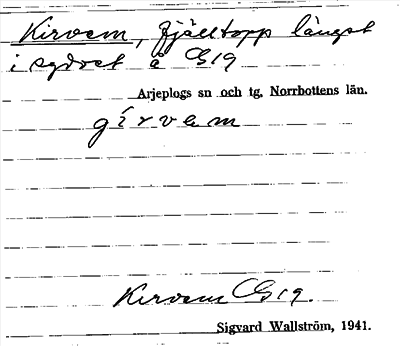 Kirvem, fjälltopp längst
i sydost å G19
Arjeplogs sn och tg. Norrbottens län.
gírvem
Kirvem G19.
Sigvard Wallström, 1941.